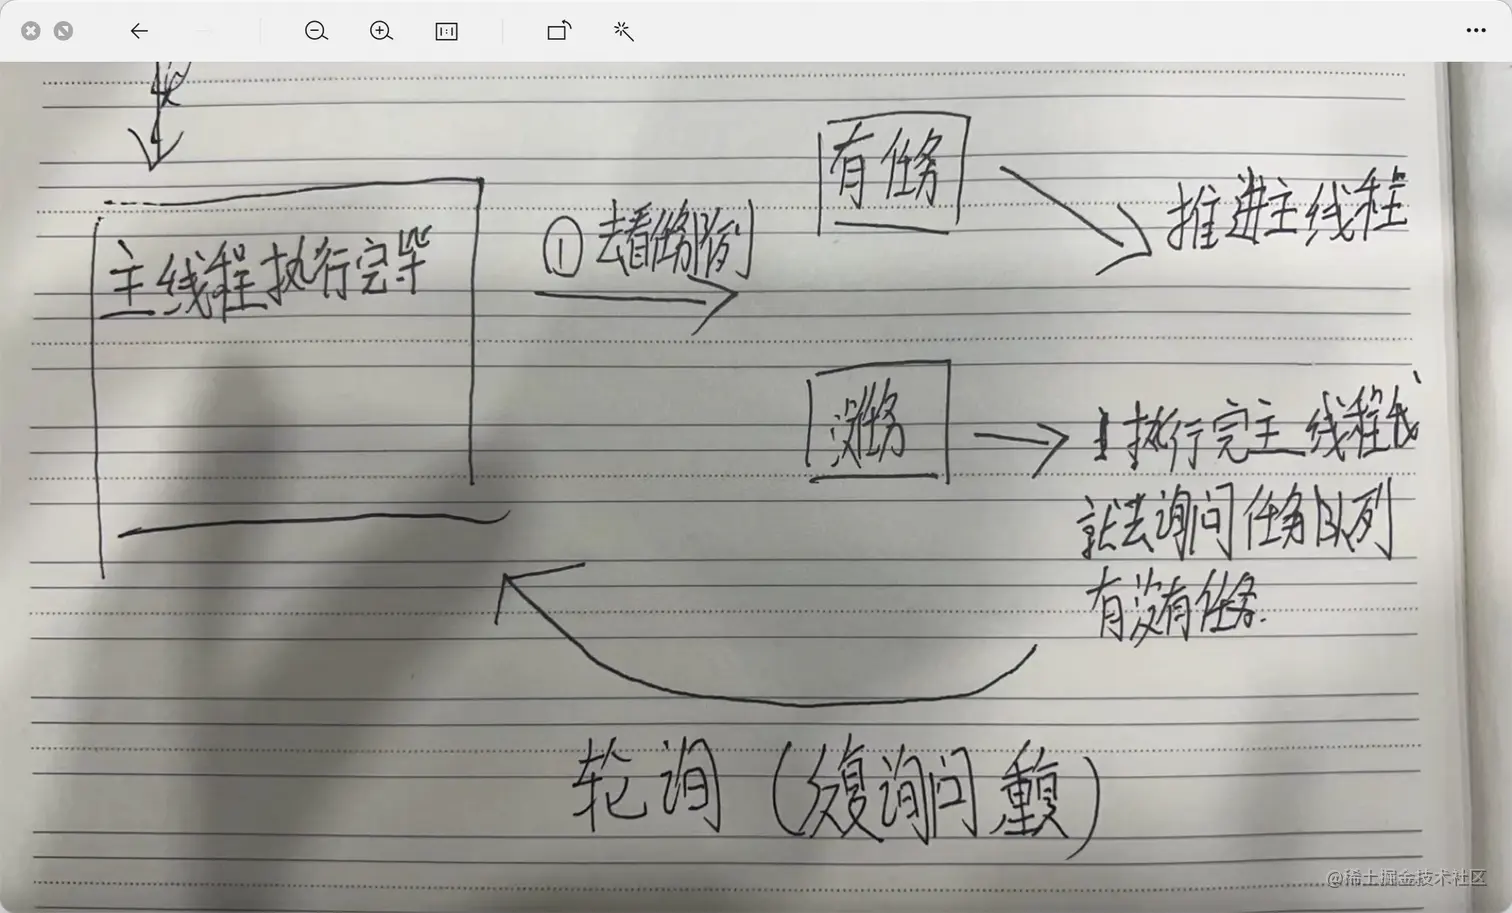 主线程执行完毕
① 去看任务队列
有任务
推进主线程
没任务
执行完主线程代
就去询问任务队列
有没有任务.
轮询 (反复询问 重复)
@稀土掘金技术社区